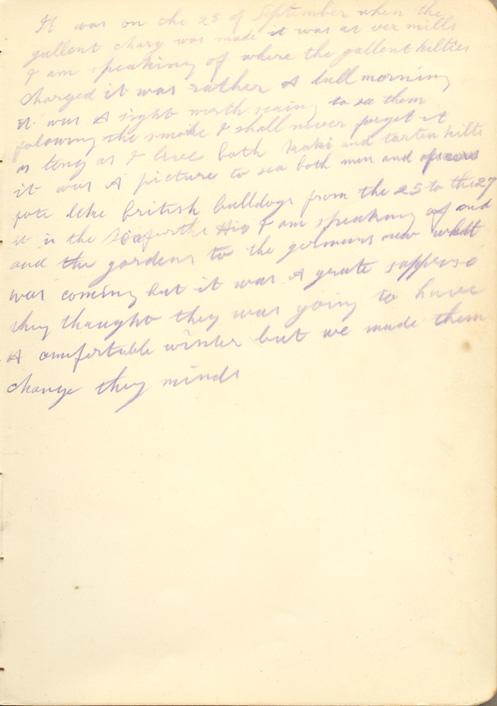 It was on the 25 of September when the
gallent charg was made it was at ver mills
I am speaking of where the gallent kilties
charged it was rather A dull morning
it was A sight worth seaing to see them
folowing the smoke I shall never forget it
as long as I live both kaki and tarten kilts
it was A picture to sea both men and
fote like British Bulldogs from the 25 to the 27
it is the Seaforths Hig I am speaking of and
and the gordens to the germans new whatt
was coming but it was A grate supprise
they thought they was going to have
A comfortable winter but we made them
change they minds